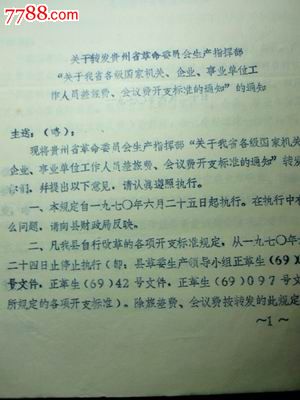 7788.com
关于转发贵州省革命委员会生产指挥部
“关于我省各级国家机关、企业、事业单位工
作人员差旅费、会议费开支标准的通知”的通知
主送：（略）：
现将贵州省革命委员会生产指挥部“关于我省各级国家机关、
企业、事业单位工作人员差旅费、会议费开支标准的通知”转发
你们，并提出以下意见，请认真遵照执行。
一、本规定自一九七〇年六月二十五日起执行。在执行中有
么问题，请向县财政局反映。
二、凡我县自行改革的各项开支标准规定，从一九七〇年
二十四日止停止执行（即：县革委生产领导小组正革生（69）
号文件，正革生（69）42号文件，正革生（69）097号文
所规定的各项开支标准）。除旅差费、会议费按转发的此规定
～1～